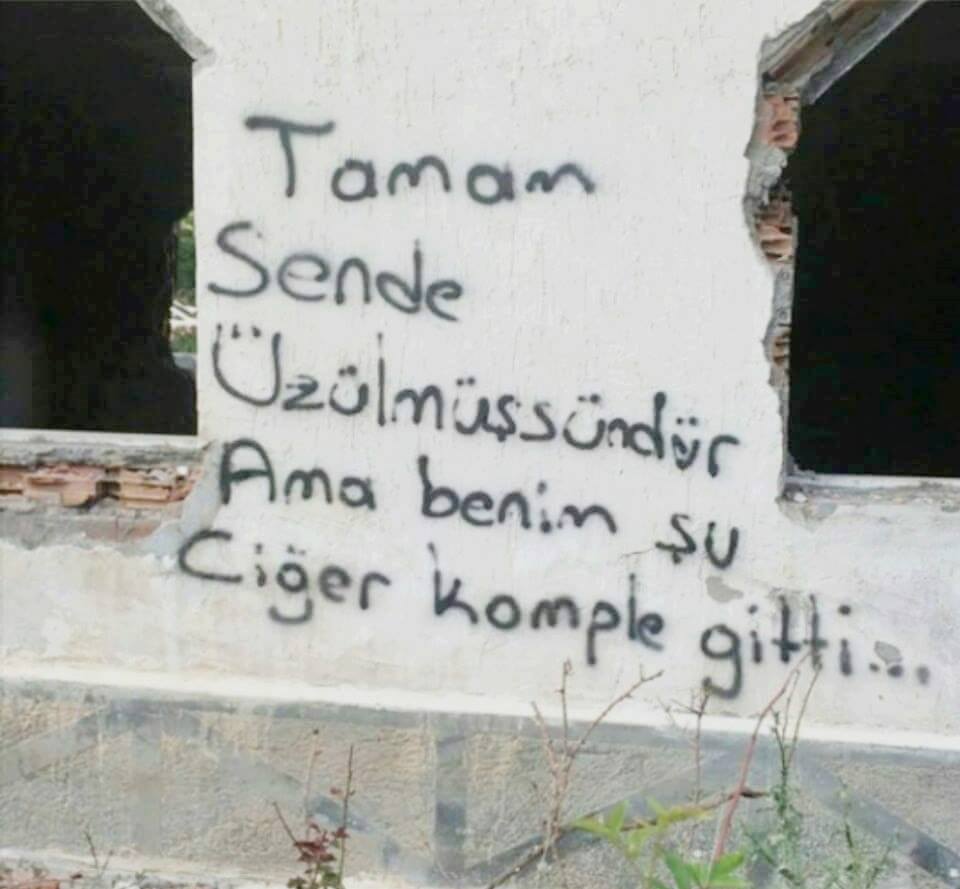 Tamam
Sende
Üzülmüşsündür
Ama benim şu
Ciğer komple gitti...